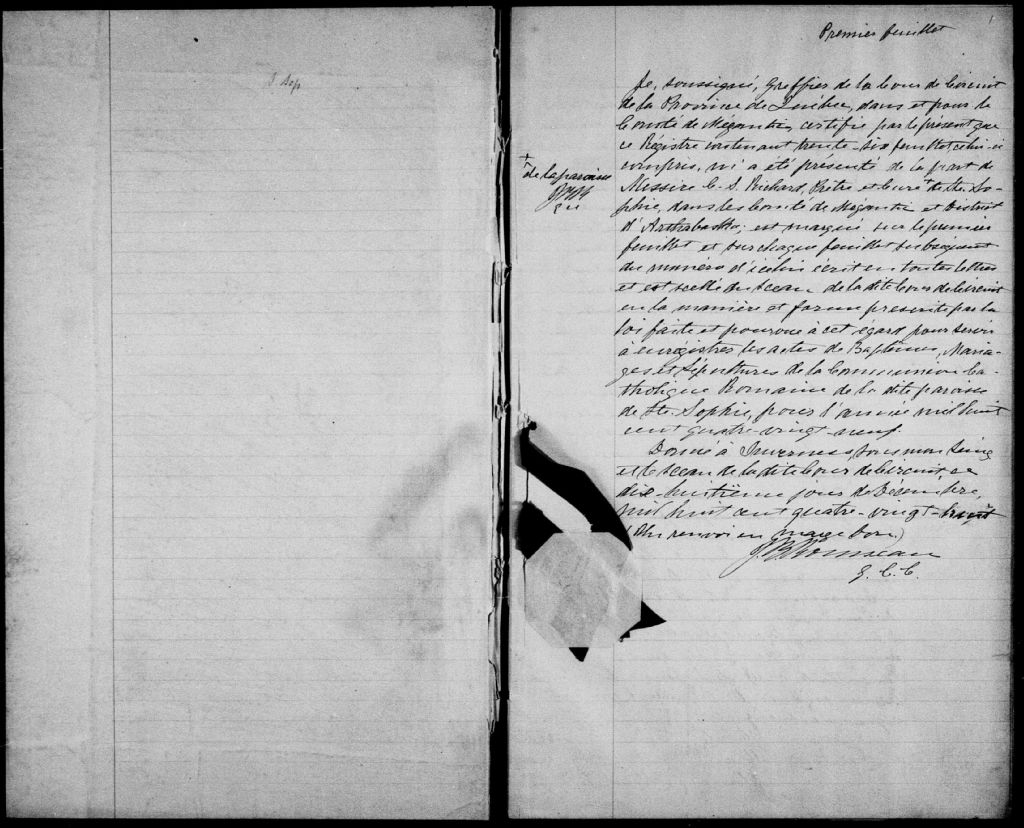 Premier feuillet
1
Je, soussigné, Greffier de la Cour de Circuit
de la Province de Québec, dans et pour le
Comté de Mégantic, certifie par le présent que
ce Régistre contenant trente-six feuillets celui-ci
compris, m'a été présenté de la part de
Messire C. S. Richard, Prêtre et curé + de Ste So-
phie, dans les Comté de Mégantic et District
d'Arthabaska; est marqué sur le premier
feuillet et sur chaque feuillet subséquent
du numéro d'icelui écrit en toutes lettres
et est scellé du sceau de la dite Cour de Circuit
en la manière et forme prescrite par la
loi faite et pourvue à cet égard pour servir
à enregistrer les actes de Baptêmes, Maria-
ges et Sépultures de la Communion Ca-
tholique Romaine de la dite paroisse
de Ste. Sophie, pour l'année mil huit
cent quatre-vingt-neuf.
Donné à Inverness, sous mon Seing
et le sceau de la dite Cour de Circuit ce
dix-huitième jour de Décembre,
mil huit cent quatre-vingt-huit
(Un renvoi en marge bon)
G. C. C.
+
de la paroisse